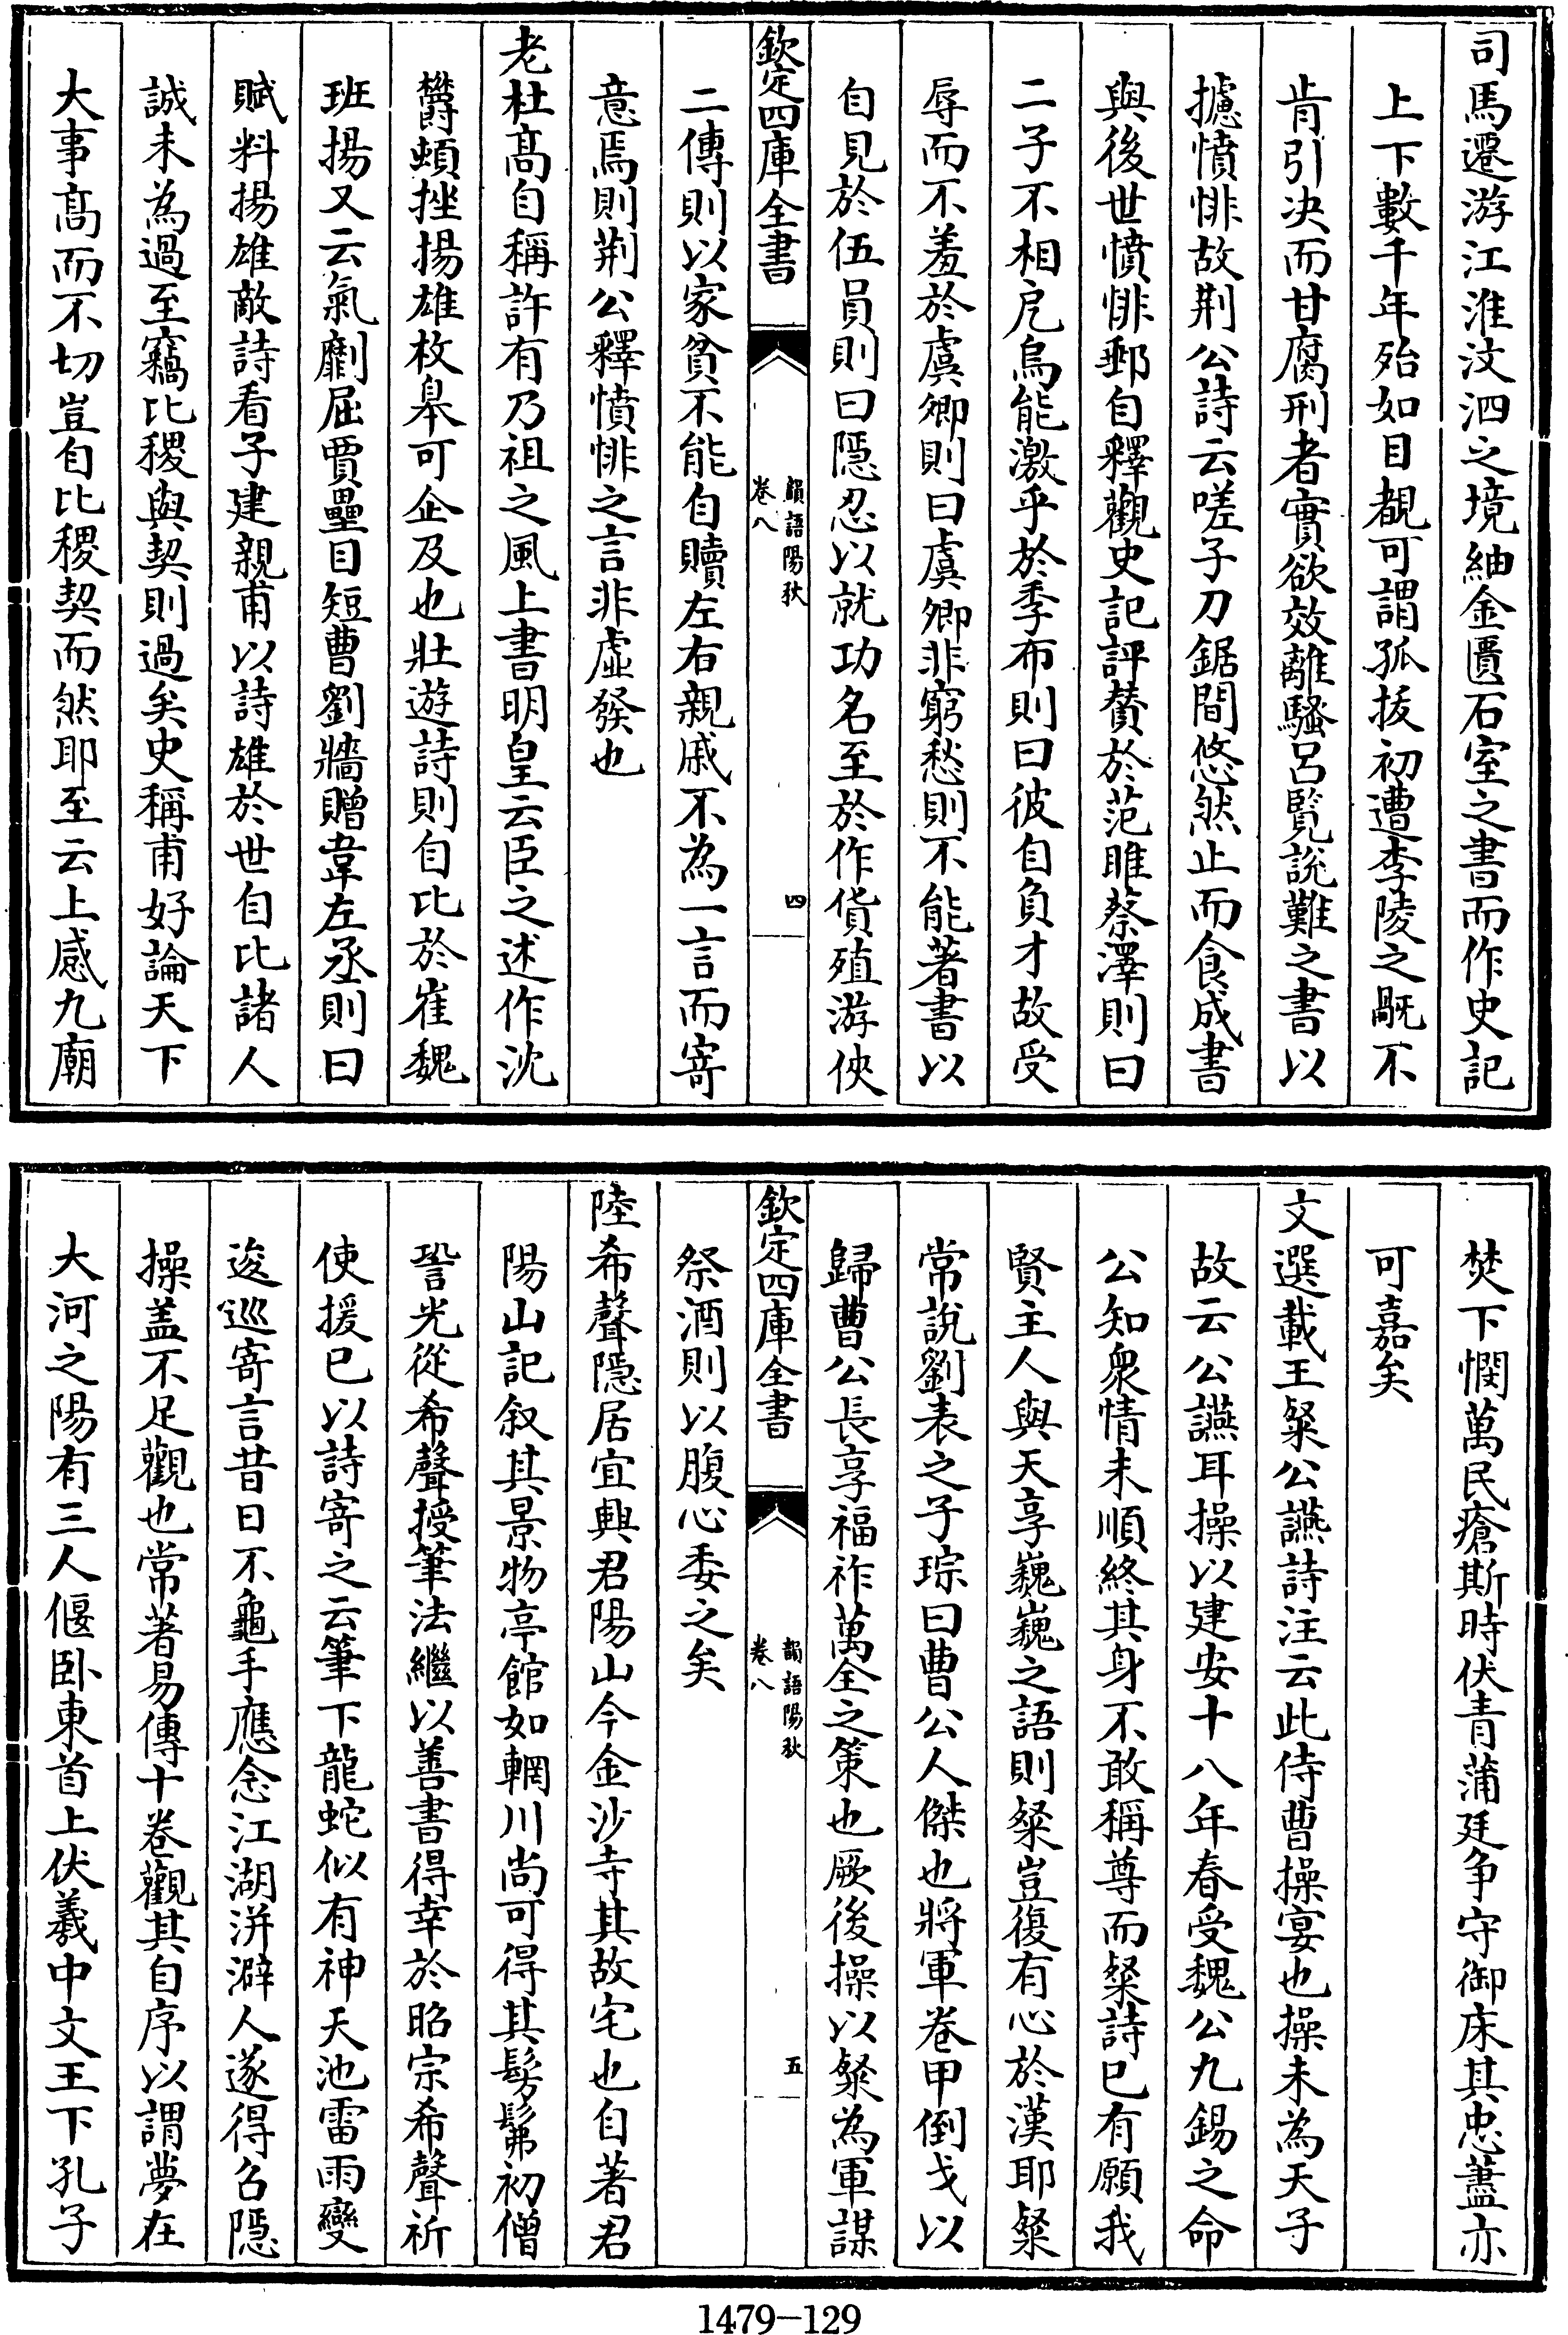 司馬遷游江淮汶泗之境紬金匱石室之書而作史記
上下數千年殆如目覩可謂孤拔初遭李陵之旤不
肯引决而甘腐刑者實欲效離騷呂覽說難之書以
攄憤悱故荆公詩云嗟子刀鋸間悠然止而食成書
與後世憤悱郵自釋觀史記評賛於范雎蔡澤則曰
二子不相戹烏能激乎於季布則曰彼自負才故受
辱而不羞於虞卿則曰虞卿非窮愁則不能著書以
自見於伍員則曰隱忍以就功名至於作貨殖游俠
欽定四庫全書
韻語陽秋
卷八
四
二傳則以家貧不能自贖左右親戚不為一言而寄
意焉則荆公釋憤悱之言非虛發也
老杜髙自稱許有乃祖之風上書明皇云臣之述作沈
欝頓挫揚雄枚臯可企及也壯遊詩則自比於崔魏
班揚又云氣劘屈賈壘目短曹劉牆贈韋左丞則曰
賦料揚雄敵詩看子建親甫以詩雄於世自比諸人
誠未為過至竊比稷與契則過矣史稱甫好論天下
大事髙而不切豈自比稷契而然耶至云上感九廟
焚下憫萬民瘡斯時伏青蒲廷争守御床其忠藎亦
可嘉矣
文選載王粲公讌詩注云此侍曹操宴也操未為天子
故云公讌耳操以建安十八年春受魏公九錫之命
公知衆情未順終其身不敢稱尊而粲詩已有願我
賢主人與天享巍巍之語則粲豈復有心於漢耶粲
常說劉表之子琮曰曹公人傑也將軍卷甲倒戈以
歸曹公長享福祚萬全之策也厥後操以粲為軍謀
欽定四庫全書
韻語陽秋
卷八
五
祭酒則以腹心委之矣
陸希聲隱居宜興君陽山今金沙寺其故宅也自著君
陽山記叙其景物亭館如輞川尚可得其髣髴初僧
㗦光從希聲授筆法繼以善書得幸於昭宗希聲祈
使援已以詩寄之云筆下龍蛇似有神天池雷雨變
逡巡寄言昔日不龜手應念江湖洴澼人遂得召隱
操盖不足觀也常著易傳十卷觀其自序以謂夢在
大河之陽有三人偃卧東首上伏羲中文王下孔子
1479-129